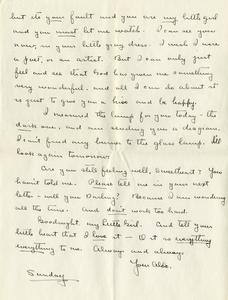 but its your fault and you are my little girl
and you must let me watch. I can see you
now, in your little gray dress. I wish I were
a poet, or an artist. But I can only just
feel and see that God has given me something
very wonderful, and all I can do about it
is just to give you a kiss and be happy.
I measured the lamp for you today - the
dark one, and am sending you a diagram.
I can't find any burner to the glass lamp. Ill
look again tomorrow.
Are you still feeling well, Sweetheart? You
haven't told me. Please tell me in your next
letter - will you Darling? Because I am wondering
all the time. And don't work too hard.
Goodnight, my little Girl. And tell your
little heart that I love it - It is everything
everything to me. Always and always.
Your
Sunday